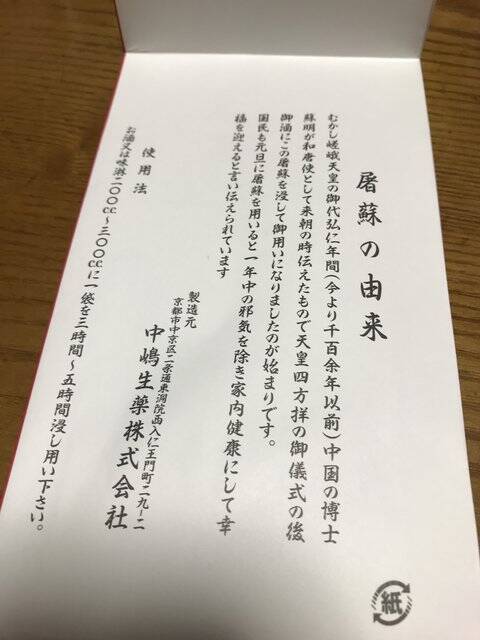 屠蘇の由来
むかし嵯峨天皇の御代弘仁年間(今より千百余年以前)中国の博士
蘇明が和唐使として来朝の時伝えたもので天皇四方拝の御儀式の後
御酒にこの屠蘇を浸して御用いになりましたのが始まりです。
国民も元旦に屠蘇を用いると一年中の邪気を除き家内健康にして幸
福を迎えると言い伝えられています
製造元
京都市中京区二条通東洞院西入仁王門町二九-二
中嶋生薬株式会社
使用法
お酒又は味淋二〇〇cc〜三〇〇ccに一袋を三時間〜五時間浸し用い下さい。
紙